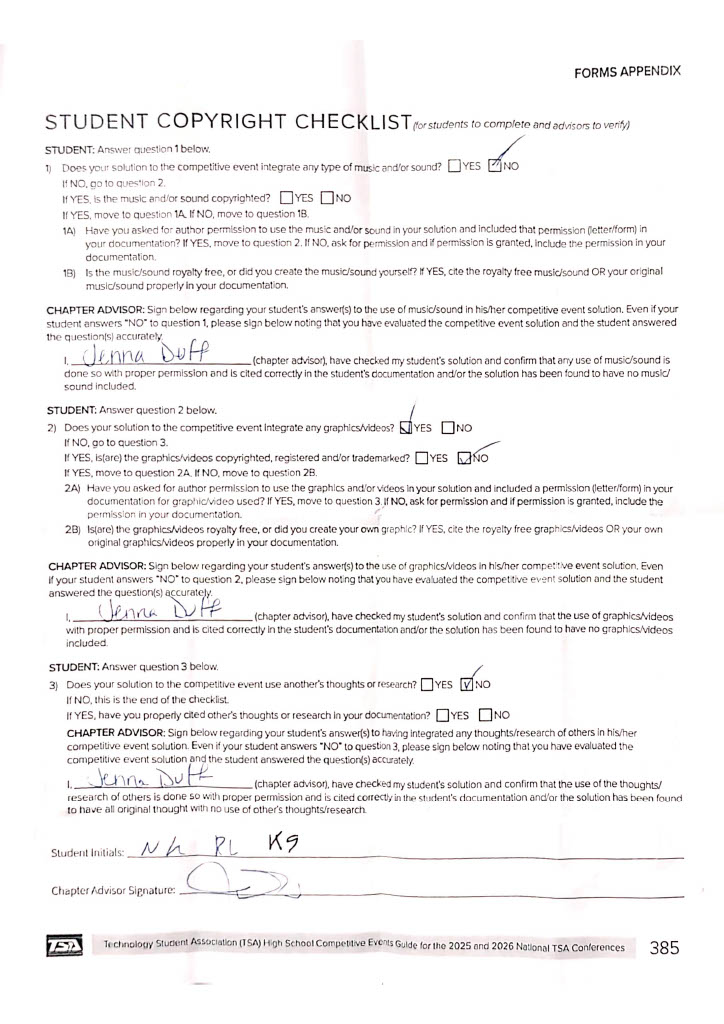 FORMS APPENDIX
STUDENT COPYRIGHT CHECKLIST (for students to complete and advisors to verify)
STUDENT: Answer question 1 below.
1) Does your solution to the competitive event integrate any type of music and/or sound? ☐ YES ☑ NO
If NO, go to question 2.
If YES, is the music and/or sound copyrighted? ☐ YES ☐ NO
If YES, move to question 1A. If NO, move to question 1B.
1A) Have you asked for author permission to use the music and/or sound in your solution and included that permission (letter/form) in
your documentation? If YES, move to question 2. If NO, ask for permission and if permission is granted, include the permission in your
documentation.
1B) Is the music/sound royalty free, or did you create the music/sound yourself? If YES, cite the royalty free music/sound OR your original
music/sound properly in your documentation.
CHAPTER ADVISOR: Sign below regarding your student's answer(s) to the use of music/sound in his/her competitive event solution. Even if your
student answers "NO" to question 1, please sign below noting that you have evaluated the competitive event solution and the student answered
the question(s) accurately.
I, Jenna Duff (chapter advisor), have checked my student's solution and confirm that any use of music/sound is
done so with proper permission and is cited correctly in the student's documentation and/or the solution has been found to have no music/
sound included.
STUDENT: Answer question 2 below.
2) Does your solution to the competitive event integrate any graphics/videos? ☑ YES ☐ NO
If NO, go to question 3.
If YES, is(are) the graphics/videos copyrighted, registered and/or trademarked? ☐ YES ☑ NO
If YES, move to question 2A. If NO, move to question 2B.
2A) Have you asked for author permission to use the graphics and/or videos in your solution and included a permission (letter/form) in your
documentation for graphic/video used? If YES, move to question 3. If NO, ask for permission and if permission is granted, include the
permission in your documentation.
2B) Is(are) the graphics/videos royalty free, or did you create your own graphic? If YES, cite the royalty free graphics/videos OR your own
original graphics/videos properly in your documentation.
CHAPTER ADVISOR: Sign below regarding your student's answer(s) to the use of graphics/videos in his/her competitive event solution. Even
if your student answers "NO" to question 2, please sign below noting that you have evaluated the competitive event solution and the student
answered the question(s) accurately.
I, Jenna Duff (chapter advisor), have checked my student's solution and confirm that the use of graphics/videos
with proper permission and is cited correctly in the student's documentation and/or the solution has been found to have no graphics/videos
included.
STUDENT: Answer question 3 below.
3) Does your solution to the competitive event use another's thoughts or research? ☐ YES ☑ NO
If NO, this is the end of the checklist.
If YES, have you properly cited other's thoughts or research in your documentation? ☐ YES ☐ NO
CHAPTER ADVISOR: Sign below regarding your student's answer(s) to having integrated any thoughts/research of others in his/her
competitive event solution. Even if your student answers "NO" to question 3, please sign below noting that you have evaluated the
competitive event solution and the student answered the question(s) accurately.
I, Jenna Duff (chapter advisor), have checked my student's solution and confirm that the use of the thoughts/
research of others is done so with proper permission and is cited correctly in the student's documentation and/or the solution has been found
to have all original thought with no use of other's thoughts/research.
Student Initials: RL
Chapter Advisor Signature:
TSA Technology Student Association (TSA) High School Competitive Events Guide for the 2025 and 2026 National TSA Conferences 385